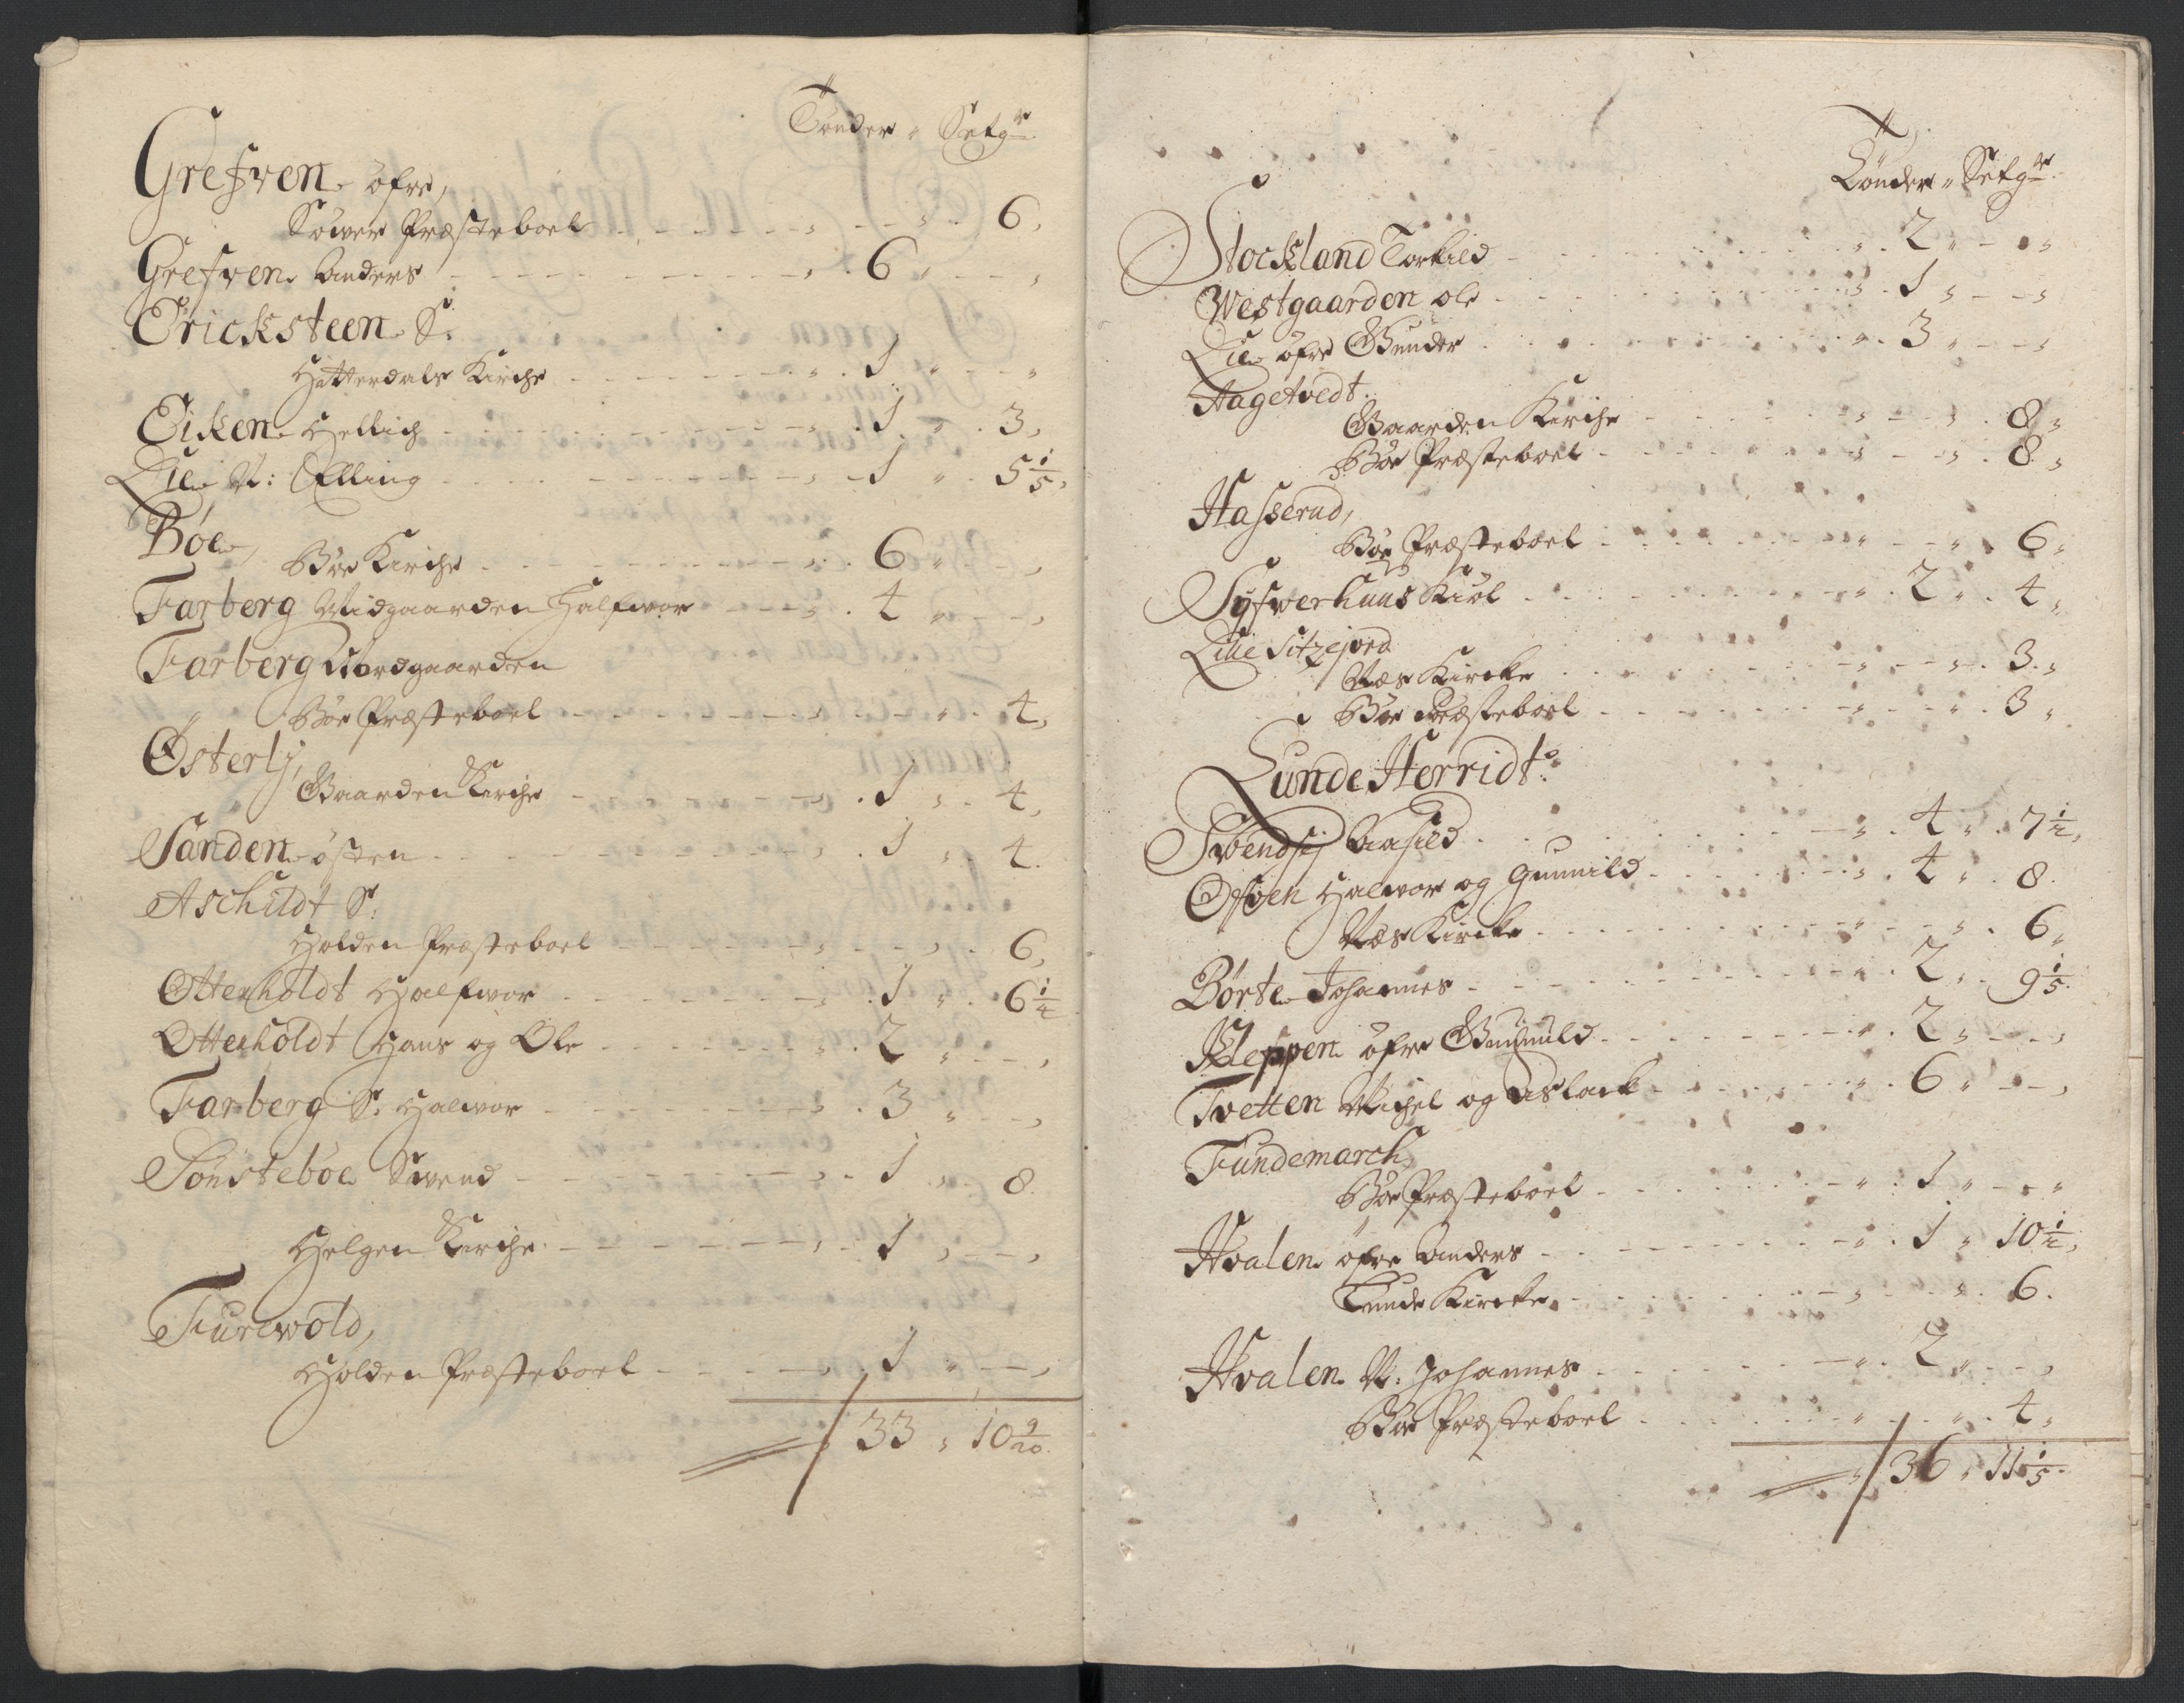 Tønder „ Setgr
Grefven øfre,
Sower Præsteboel 6,
Grefven Anders 6 „
Ericksteen S:
Hitterdals Kirche 1 „
Eiken Hellich 1 „ 3,
Lie N: Elling 1 „ 5 1/5,
Bøe,
Bøe Kirche 6 „
Farberg Midgaarden Halfwor 4 „
Farberg Nordgaarden
Bøe Præsteboel 4,
Østerlj,
Gaarden Kirche 1 „ 4,
Sanden østen 1 „ 4.
Aschildt S:
Holden Præsteboel 6,
Otterholdt Halfwor 1 „ 6 1/4
Otterholdt Hans og Ole 2 „
Farberg S: Halwor 3 „
Sønsteboe Swend 1 „ 8.
Helgen Kirche 1 „
Furewold,
Holden Præsteboel 1 „
33 „ 10 9/20.
Tønder „ Setgr.
Stockland Torkild 2 „
Westgaarden ole 1 „
Lie øfre Gunder 3 „
Hagetvedt.
Gaarden Kirche 8 „
Bøe Præsteboel 8 „
Hasserud,
Bøe Præsteboel 6 „
Syfverhuus Kiil 2 „ 4 „
Lille Sitzejord
Næs Kircke 3 „
Bøe Præsteboel 3 „
Lunde Herridt:
Swendsij Aasild 4 „ 7 1/2,
Ofven Halwor og Gunnild 4 „ 8.
Næs Kircke 6 „
Børte Johannes 2 „ 9 1/5.
Kleppen øfre Gunnuld 2 „
Tvetten Michel og Aslack 6 „
Fundemarch,
Bøe Præsteboel 1 „
Hvalen øfre Anders 1 „ 10 1/2,
Lunde Kircke 6.
Hvalen N: Johannes 2 „
Bøe Præsteboel 4 „
36 „ 11 1/5.